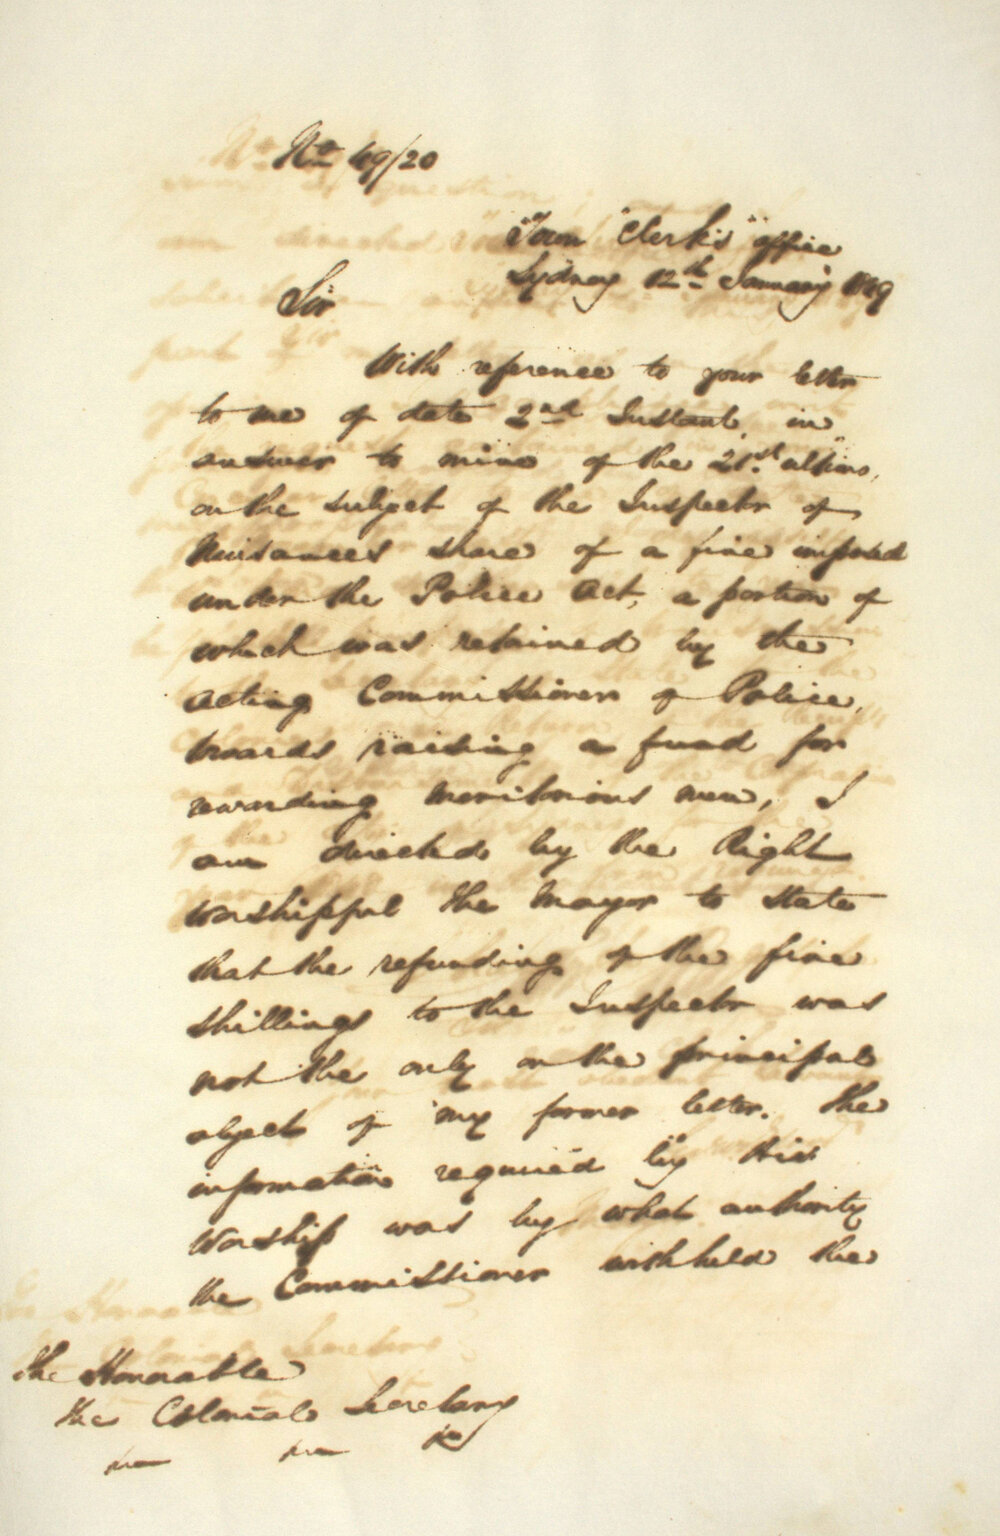 No 49/20
Town Clerk's office
Sydney 12th January 1849
Sir
With reference to your letter
to me of date 2nd Instant, in
answer to mine of the 21st ultimo,
on the subject of the Inspector of
Nuisances share of a fine imposed
under the Police Act, a portion of
which was retained by the
Acting Commissioner of Police,
towards raising a fund for
rewarding meritorious men, I
am directed by the Right
Worshipful the Mayor to state
that the refunding of the five
shillings to the Inspector was
not the only or the principal
object of my former letter. The
information required by His
Worship was by what authority
the Commissioner withheld the
The Honorable
The Colonial Secretary